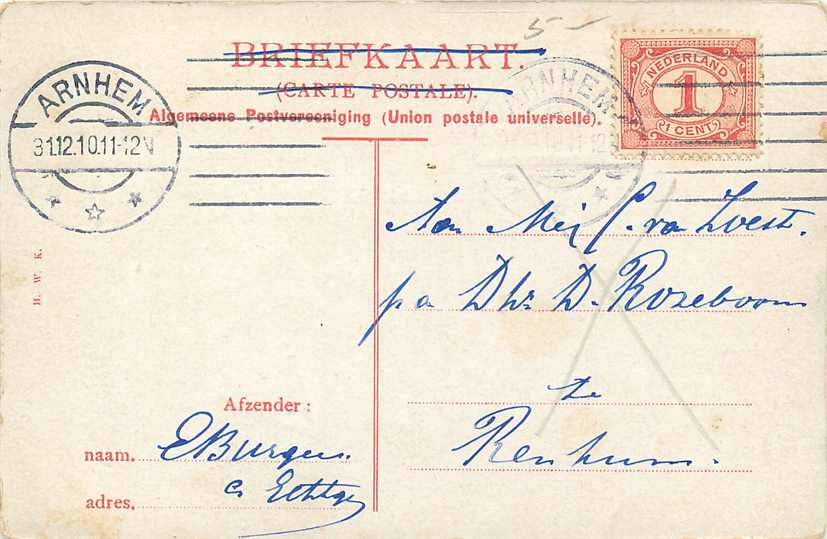 5-
BRIEFKAART.
(CARTE POSTALE).
Algemeene Postvereeniging (Union postale universelle).
NEDERLAND
1
1 CENT
ARNHEM
31.12.10.11-12V
ARNHEM
H. W. K.
Aan Mej C. van Zoest.
p a Dhr D. Rozeboom
te
Renkum.
Afzender:
naam. E Burgers
adres. en Echtge